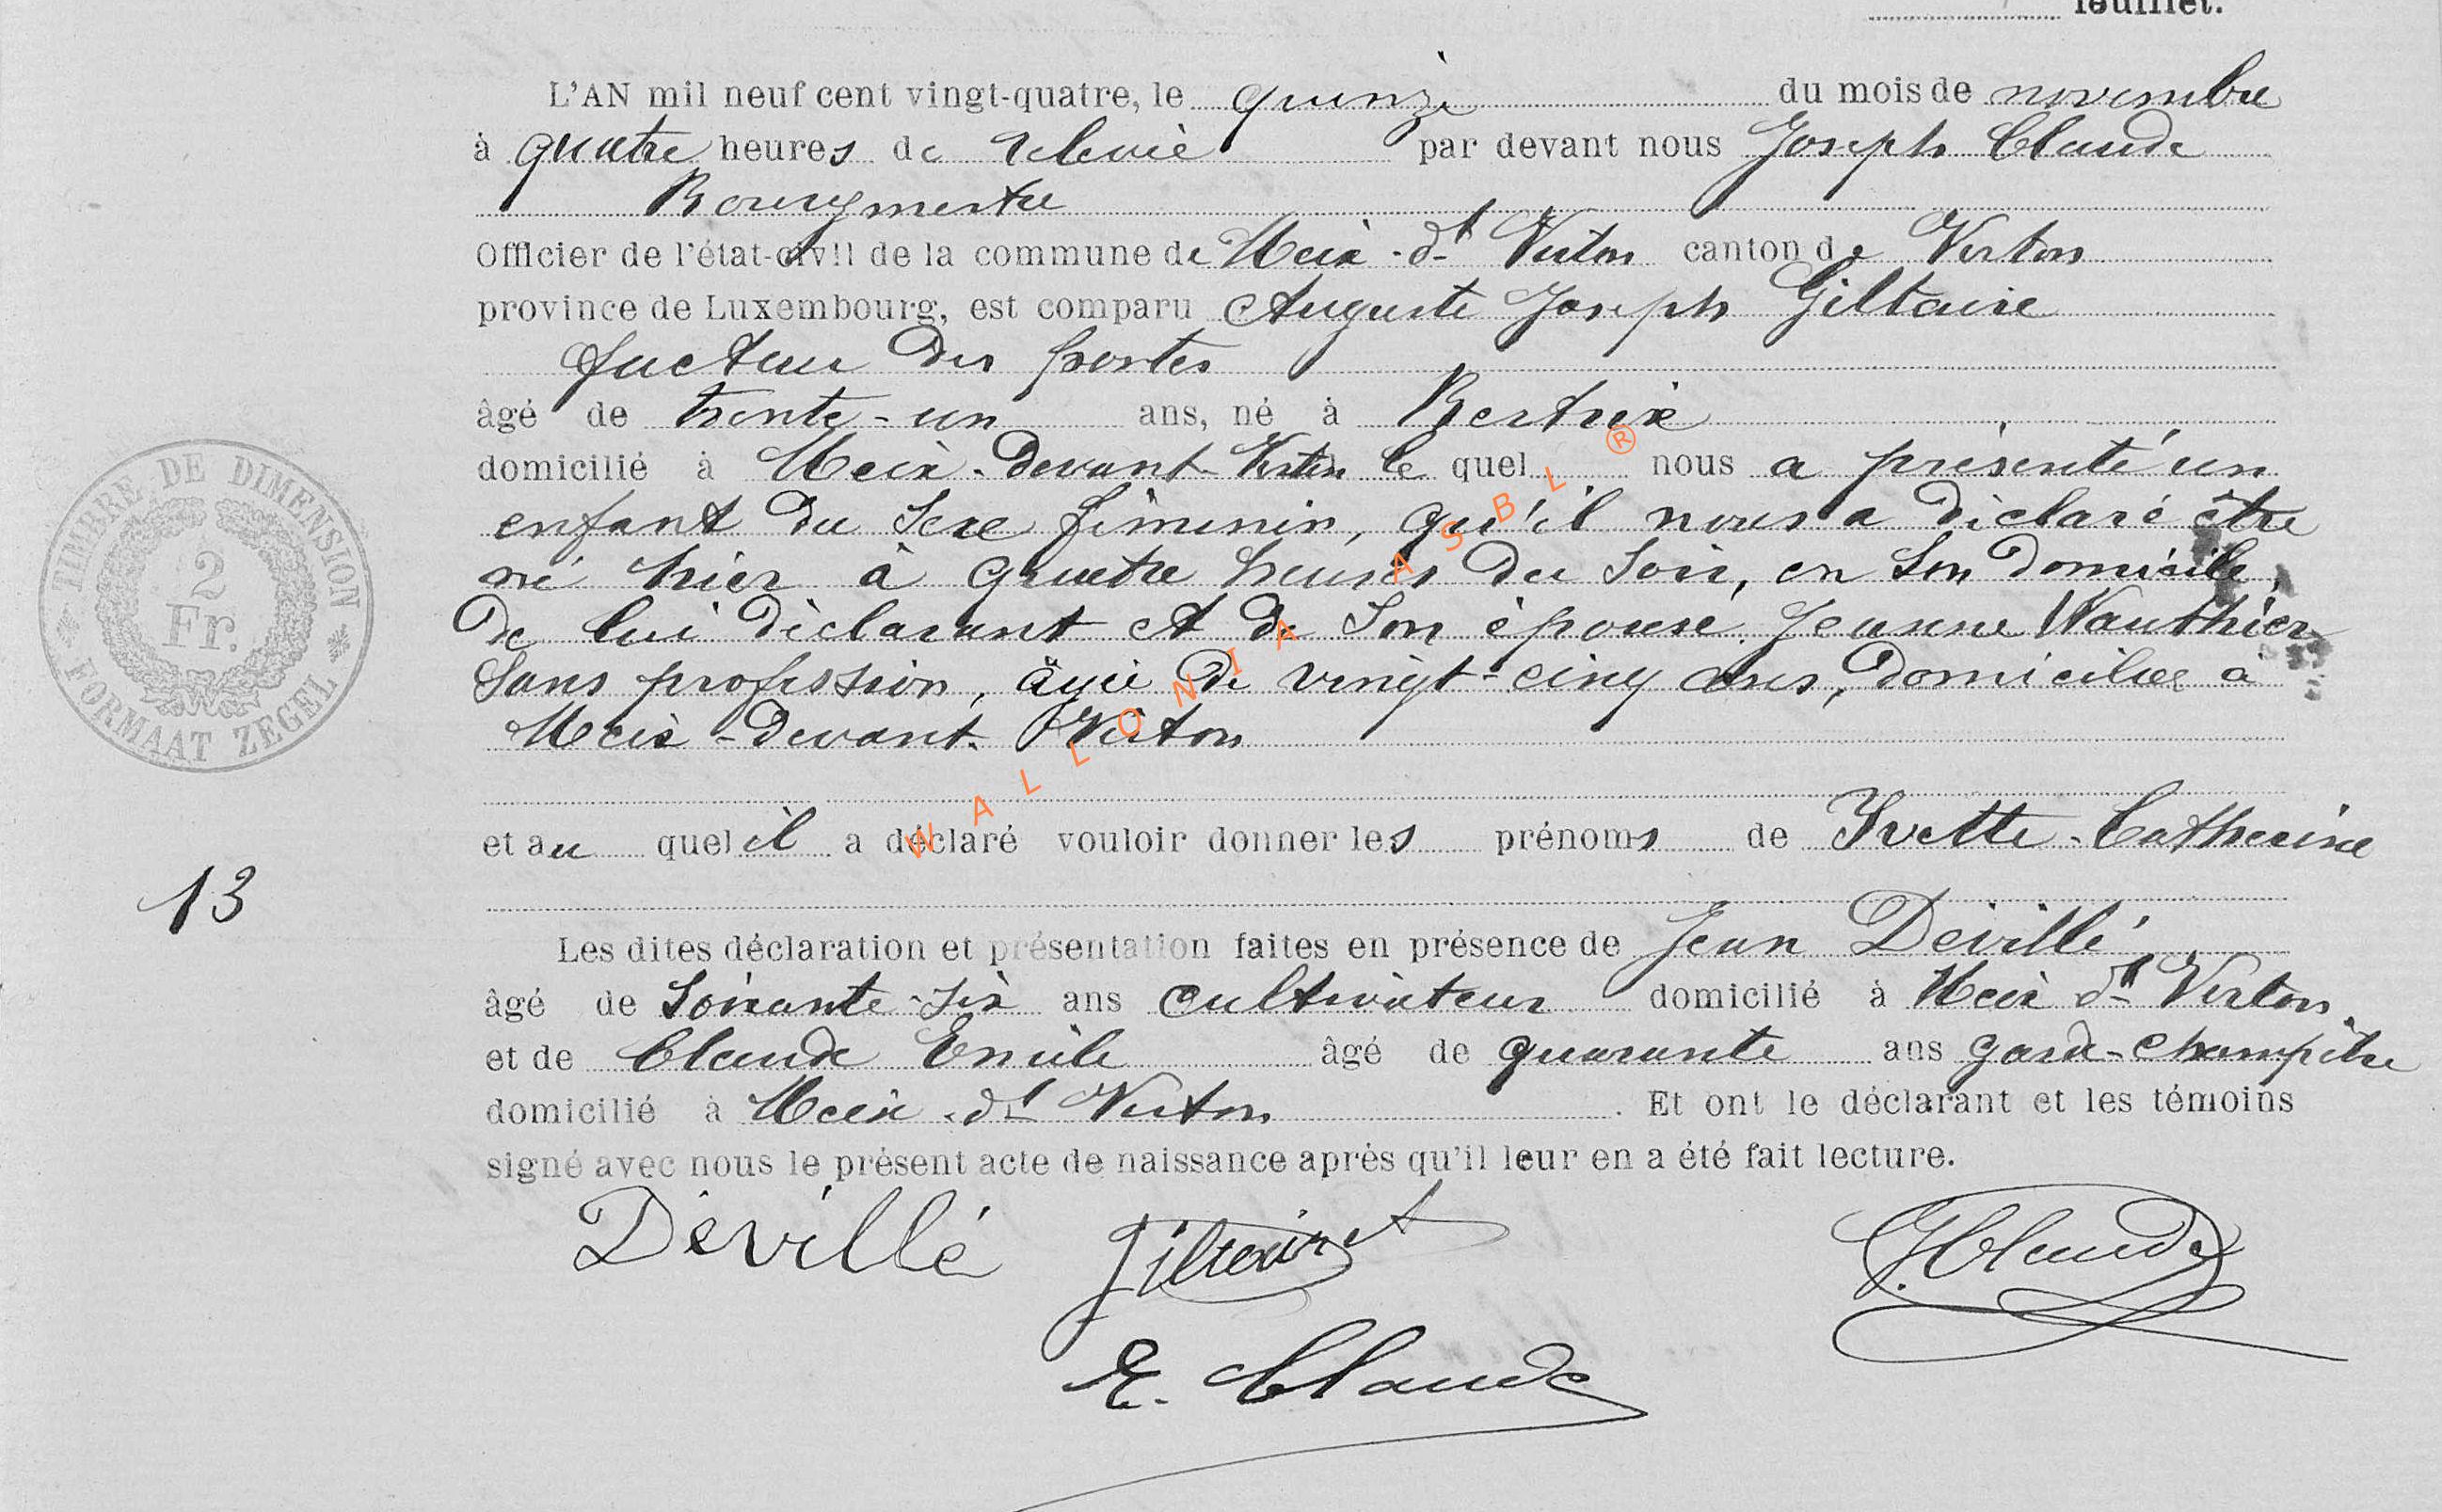 feuillet.
L'AN mil neuf cent vingt-quatre, le quinze du mois de novembre
à quatre heures de relevée par devant nous Joseph Claude
Bourgmestre
Officier de l'état-civil de la commune de Meix-dt Virton canton de Virton
province de Luxembourg, est comparu Auguste Joseph Giltaire
facteur des postes
âgé de trente-un ans, né à Bertrix
domicilié à Meix-devant-Virton lequel nous a présenté un
enfant du sexe féminin, qu'il nous a déclaré être
né hier à quatre heures du soir, en son domicile,
de lui déclarant et de son épouse Jeanne Wauthier
sans profession, âgée de vingt-cinq ans, domiciliée à
Meix-devant-Virton
et au quel il a déclaré vouloir donner les prénoms de Yvette-Catherine
13
Les dites déclaration et présentation faites en présence de Jean Dévillé
âgé de soixante-six ans cultivateur domicilié à Meix dt Virton
et de Claude Emile âgé de quarante ans garde-champêtre
domicilié à Meix-dt Virton. Et ont le déclarant et les témoins
signé avec nous le présent acte de naissance après qu'il leur en a été fait lecture.
Dévillé Giltaire J Claude
E. Claude
TIMBRE DE DIMENSION
2
Fr.
FORMAAT ZEGEL
WALLONIA ASBL ®